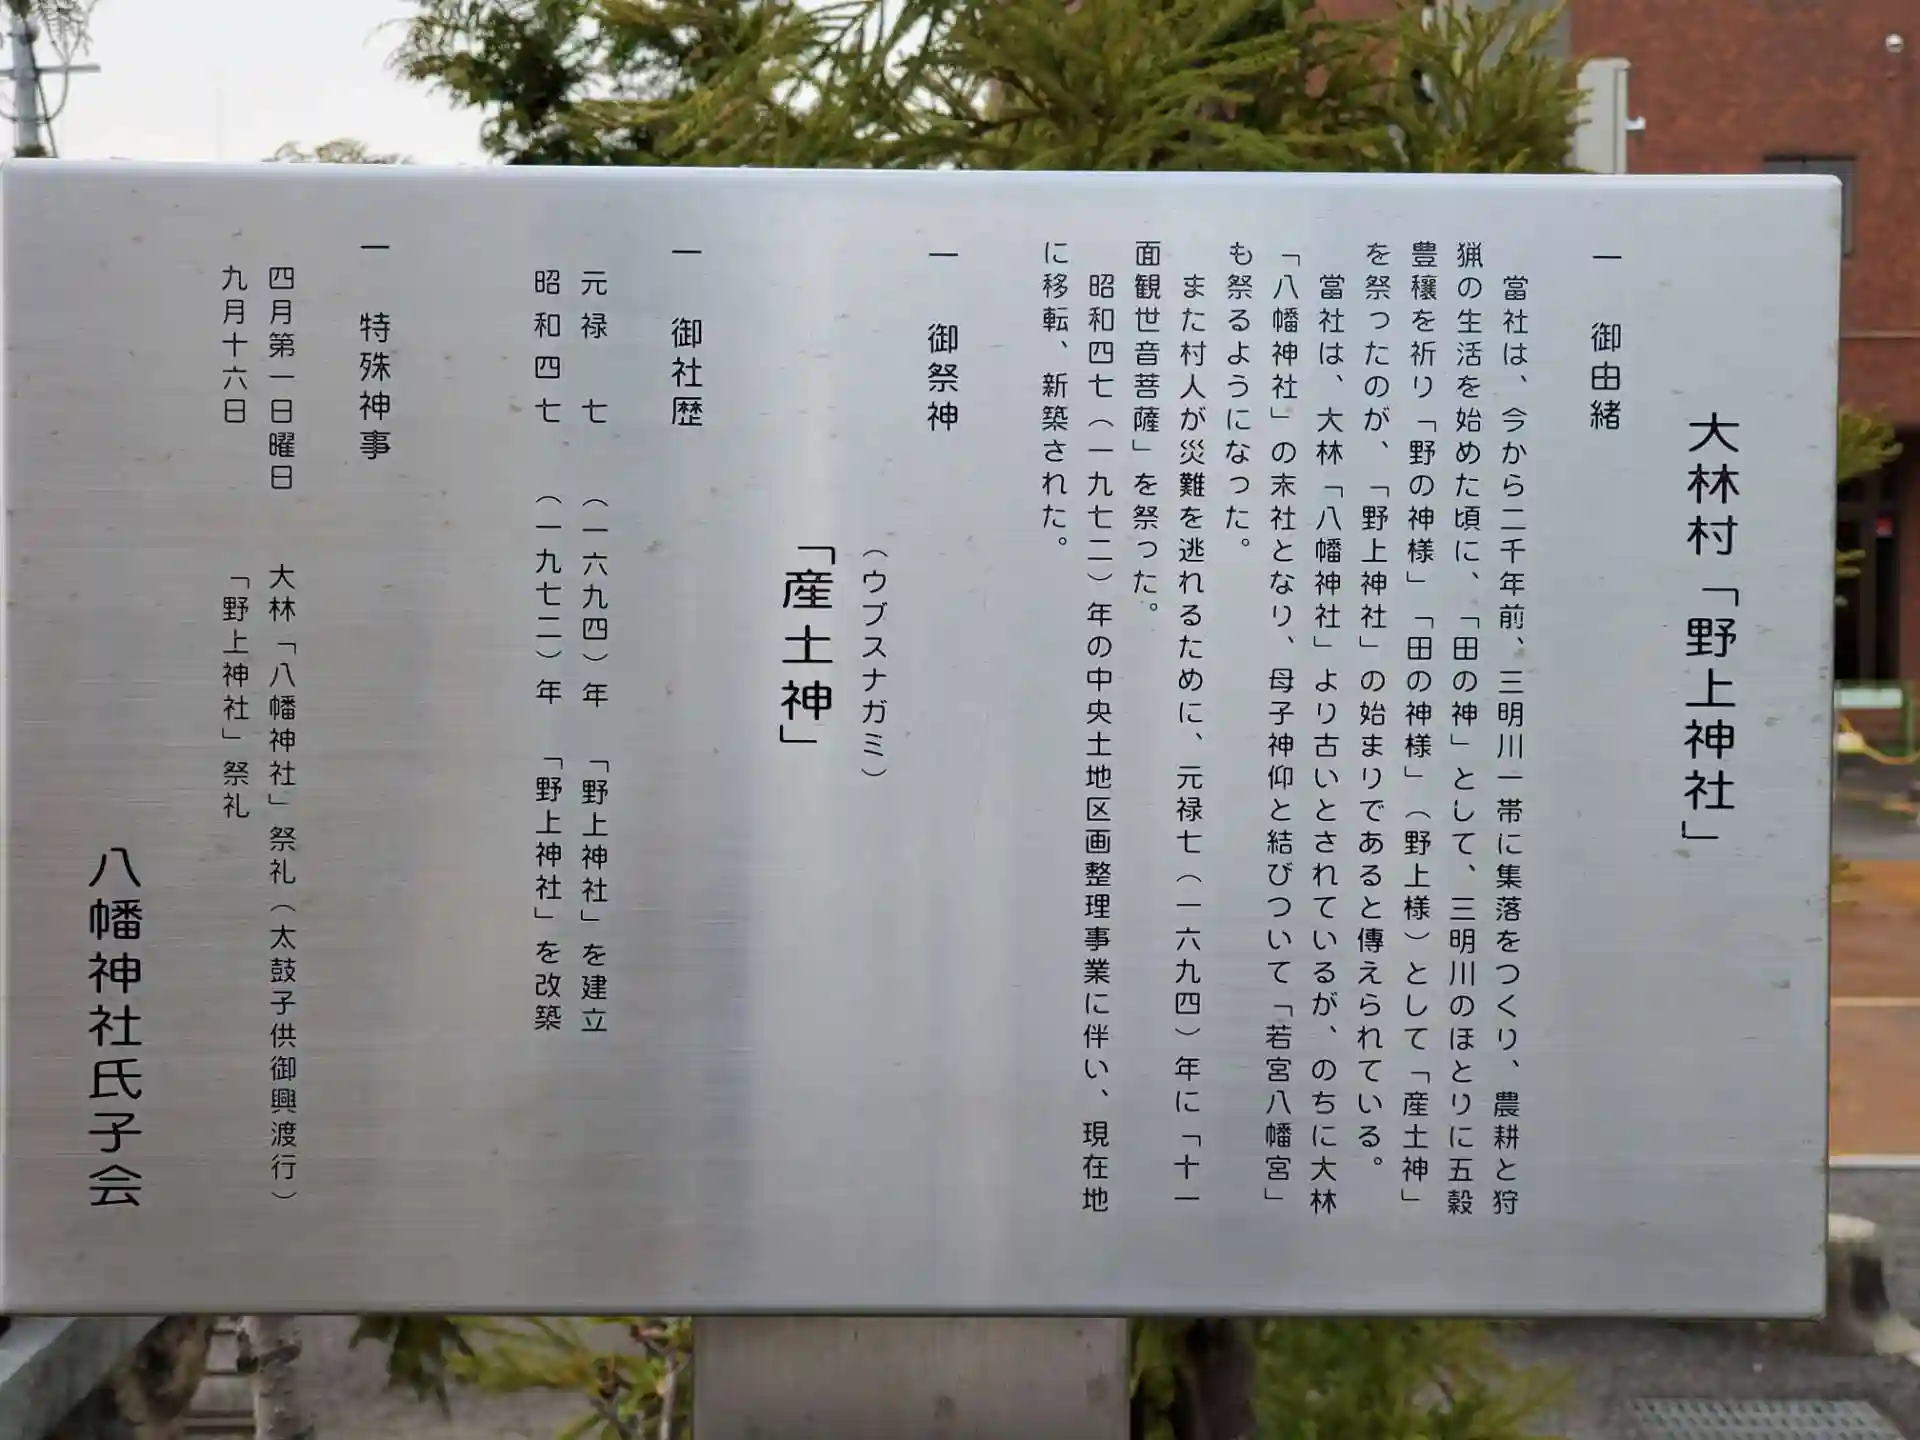 大林村「野上神社」
一 御由緒
當社は、今から二千年前、三明川一帯に集落をつくり、農耕と狩
猟の生活を始めた頃に、「田の神」として、三明川のほとりに五穀
豊穣を祈り「野の神様」「田の神様」（野上様）として「産土神」
を祭ったのが、「野上神社」の始まりであると傳えられている。
當社は、大林「八幡神社」より古いとされているが、のちに大林
「八幡神社」の末社となり、母子神仰と結びついて「若宮八幡宮」
も祭るようになった。
また村人が災難を逃れるために、元禄七（一六九四）年に「十一
面観世音菩薩」を祭った。
昭和四七（一九七二）年の中央土地区画整理事業に伴い、現在地
に移転、新築された。
一 御祭神
（ウブスナガミ）
「産土神」
一 御社歴
元禄 七 （一六九四）年 「野上神社」を建立
昭和四七 （一九七二）年 「野上神社」を改築
一 特殊神事
四月第一日曜日 大林「八幡神社」祭礼（太鼓子供御興渡行）
九月十六日 「野上神社」祭礼
八幡神社氏子会